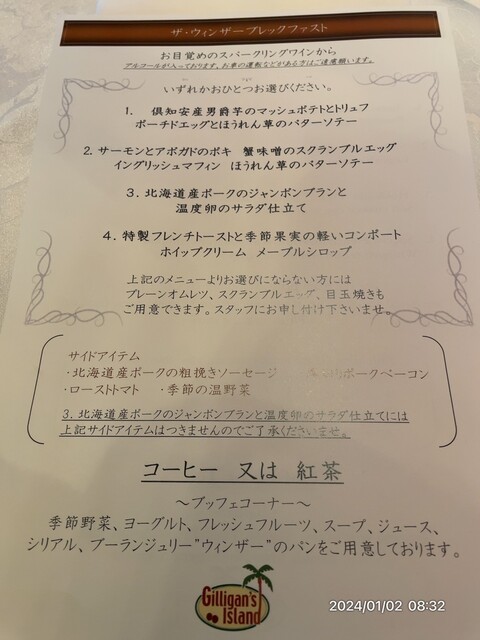 ザ・ウィンザーブレックファスト
お目覚めのスパークリングワインから
アルコールが入っております、お車の運転などがある方はご遠慮願います。
いずれかおひとつお選びください。
1. 倶知安産男爵芋のマッシュポテトとトリュフ
ポーチドエッグとほうれん草のバターソテー
2. サーモンとアボガドのポキ 蟹味噌のスクランブルエッグ
イングリッシュマフィン ほうれん草のバターソテー
3. 北海道産ポークのジャンボンブランと
温度卵のサラダ仕立て
4. 特製フレンチトーストと季節果実の軽いコンポート
ホイップクリーム メープルシロップ
上記のメニューよりお選びにならない方には
プレーンオムレツ、スクランブルエッグ、目玉焼きも
ご用意できます。スタッフにお申し付け下さいませ。
サイドアイテム
・北海道産ポークの粗挽きソーセージ ポークベーコン
・ローストトマト ・季節の温野菜
3. 北海道産ポークのジャンボンブランと温度卵のサラダ仕立てには
上記サイドアイテムはつきませんのでご了承くださいませ。
コーヒー 又は 紅茶
～ブッフェコーナー～
季節野菜、ヨーグルト、フレッシュフルーツ、スープ、ジュース、
シリアル、ブーランジュリー”ウィンザー”のパンをご用意しております。
Gilligan's
Island
2024/01/02 08:32